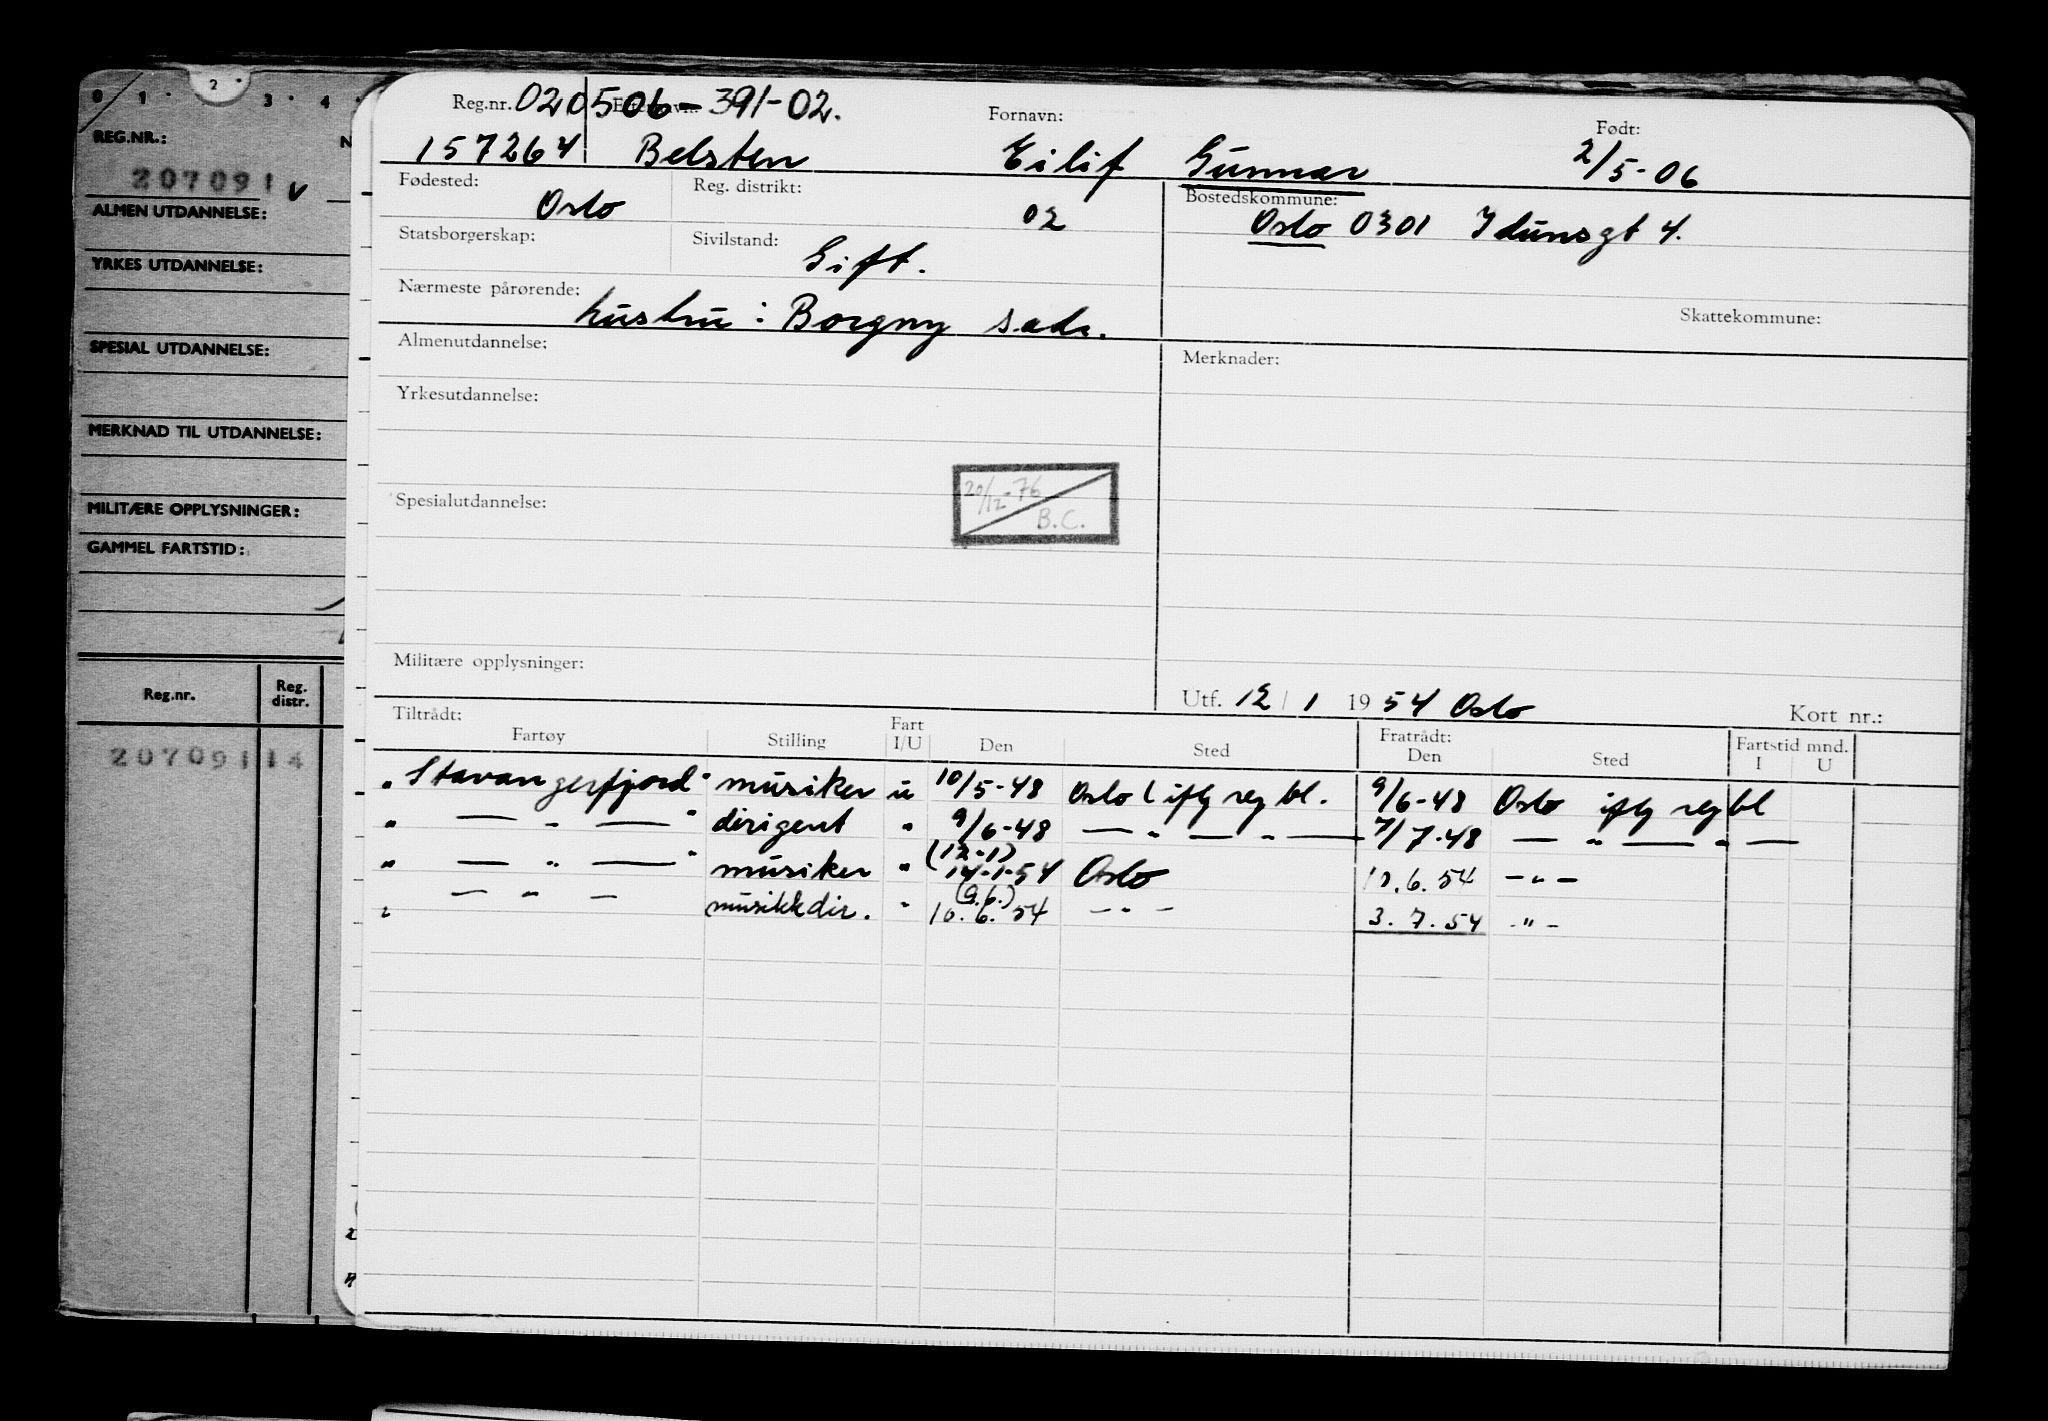 0 1 · 2 · 3 · 4 ·
REG.NR.: N
207091 v
ALMEN UTDANNELSE:
YRKES UTDANNELSE:
SPESIAL UTDANNELSE:
MERKNAD TIL UTDANNELSE:
MILITÆRE OPPLYSNINGER:
GAMMEL FARTSTID:
Reg.nr. Reg. distr.
207091 14
Reg.nr. 020506-391-02. Etternavn: Fornavn: Født:
157264 Belsten Eilif Gunnar 2/5-06
Fødested: Oslo Reg. distrikt: 02 Bostedskommune: Oslo 0301 Idunsgt 4.
Statsborgerskap: Sivilstand: Gift.
Nærmeste pårørende: hustru: Borgny s.adr. Skattekommune:
Almenutdannelse: Merknader:
Yrkesutdannelse:
20/12-76 B.C.
Spesialutdannelse:
Militære opplysninger:
Utf. 12/1 1954 Oslo Kort nr.:
Tiltrådt: Fratrådt: Fartstid mnd.
Fartøy Stilling Fart I/U Den Sted Den Sted I U
"Stavangerfjord" musiker u 10/5-48 Oslo (iflg regbl. 9/6-48 Oslo iflg regbl
" — " — " dirigent " 9/6-48 — " — " — 7/7-48 — " — " —
" — " — " musiker " (12-1) 14-1-54 Oslo 10.6.54 — " —
" — " — musikkdir. " (9.6.) 10.6.54 — " — 3.7.54 - " -